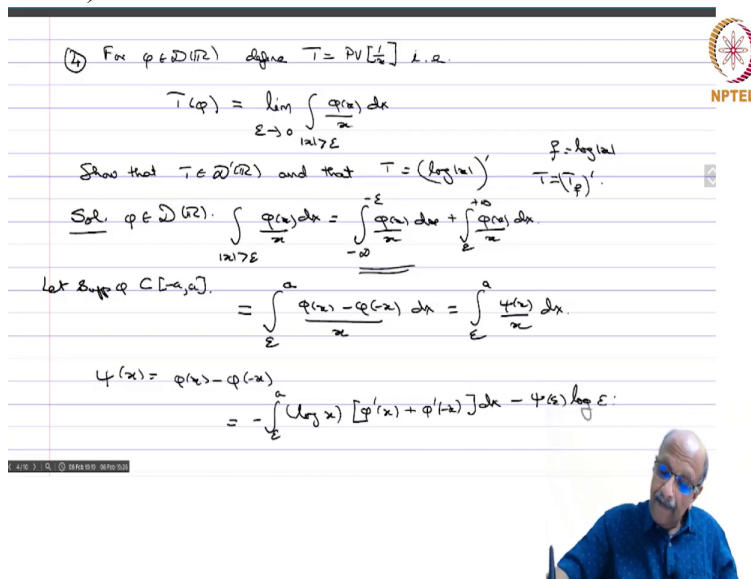 ④ For φ ∈ D(ℝ) define T = PV[1/x] i.e.
NPTEL
T(φ) = lim_{ε→0} ∫_{|x|>ε} φ(x)/x dx
f = log|x|
Show that T ∈ D'(ℝ) and that T = (log|x|)' T = (T_f)'.
Sol. φ ∈ D(ℝ). ∫_{|x|>ε} φ(x)/x dx = ∫_{-∞}^{-ε} φ(x)/x dx + ∫_{ε}^{+∞} φ(x)/x dx.
Let supp φ ⊂ [-a,a].
= ∫_{ε}^{a} (φ(x) - φ(-x))/x dx = ∫_{ε}^{a} ψ(x)/x dx.
ψ(x) = φ(x) - φ(-x)
= - ∫_{ε}^{a} (log x) [φ'(x) + φ'(-x)] dx - ψ(ε) log ε.
4/10 08 Feb 19:19 08 Feb 19:26